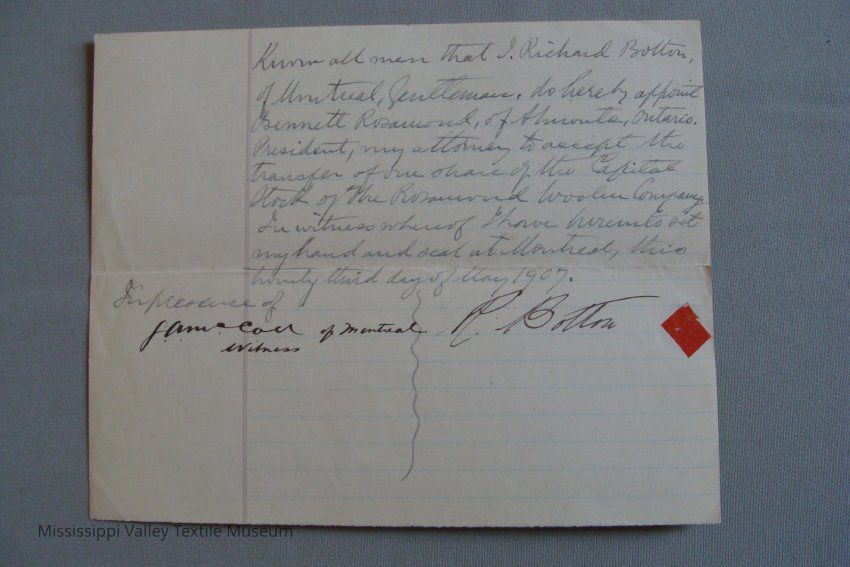 Know all men that I, Richard Bolton,
of Montreal, Gentleman, do hereby appoint
Bennett Rosamond, of Almonte, Ontario,
President, my attorney to accept the
transfer of one share of the Capital
Stock of The Rosamond Woolen Company.
In witness whereof I have hereunto set
my hand and seal at Montreal, this
twenty third day of May 1907.
In presence of
of Montreal
R. Bolton
Witness
Mississippi Valley Textile Museum